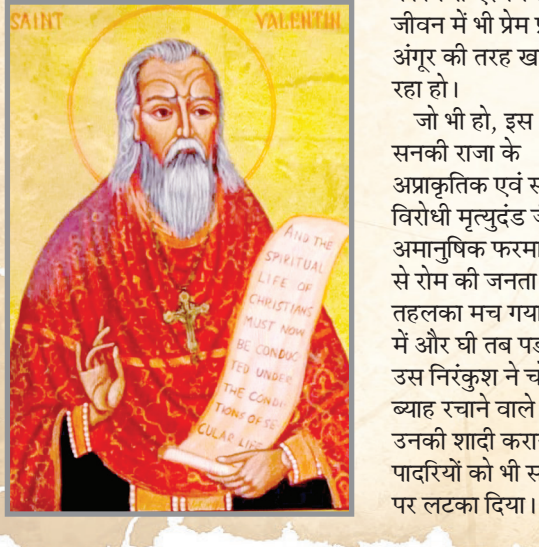 SAINT VALENTIN
AND THE
SPIRITUAL
LIFE OF
CHRISTIANS
MUST NOW
BE CONDUC
TED UNDER
THE CONDI
TIONS OF SE
CULAR LIFE
जीवन में भी प्रेम
अंगूर की तरह
रहा हो।
जो भी हो, इस
सनकी राजा के
अप्राकृतिक एवं
विरोधी मृत्युदंड
अमानुषिक
से रोम की जनता
तहलका मच गया
में और घी तब
उस निरंकुश ने
ब्याह रचाने वाले
उनकी शादी
पादरियों को भी
पर लटका दिया।